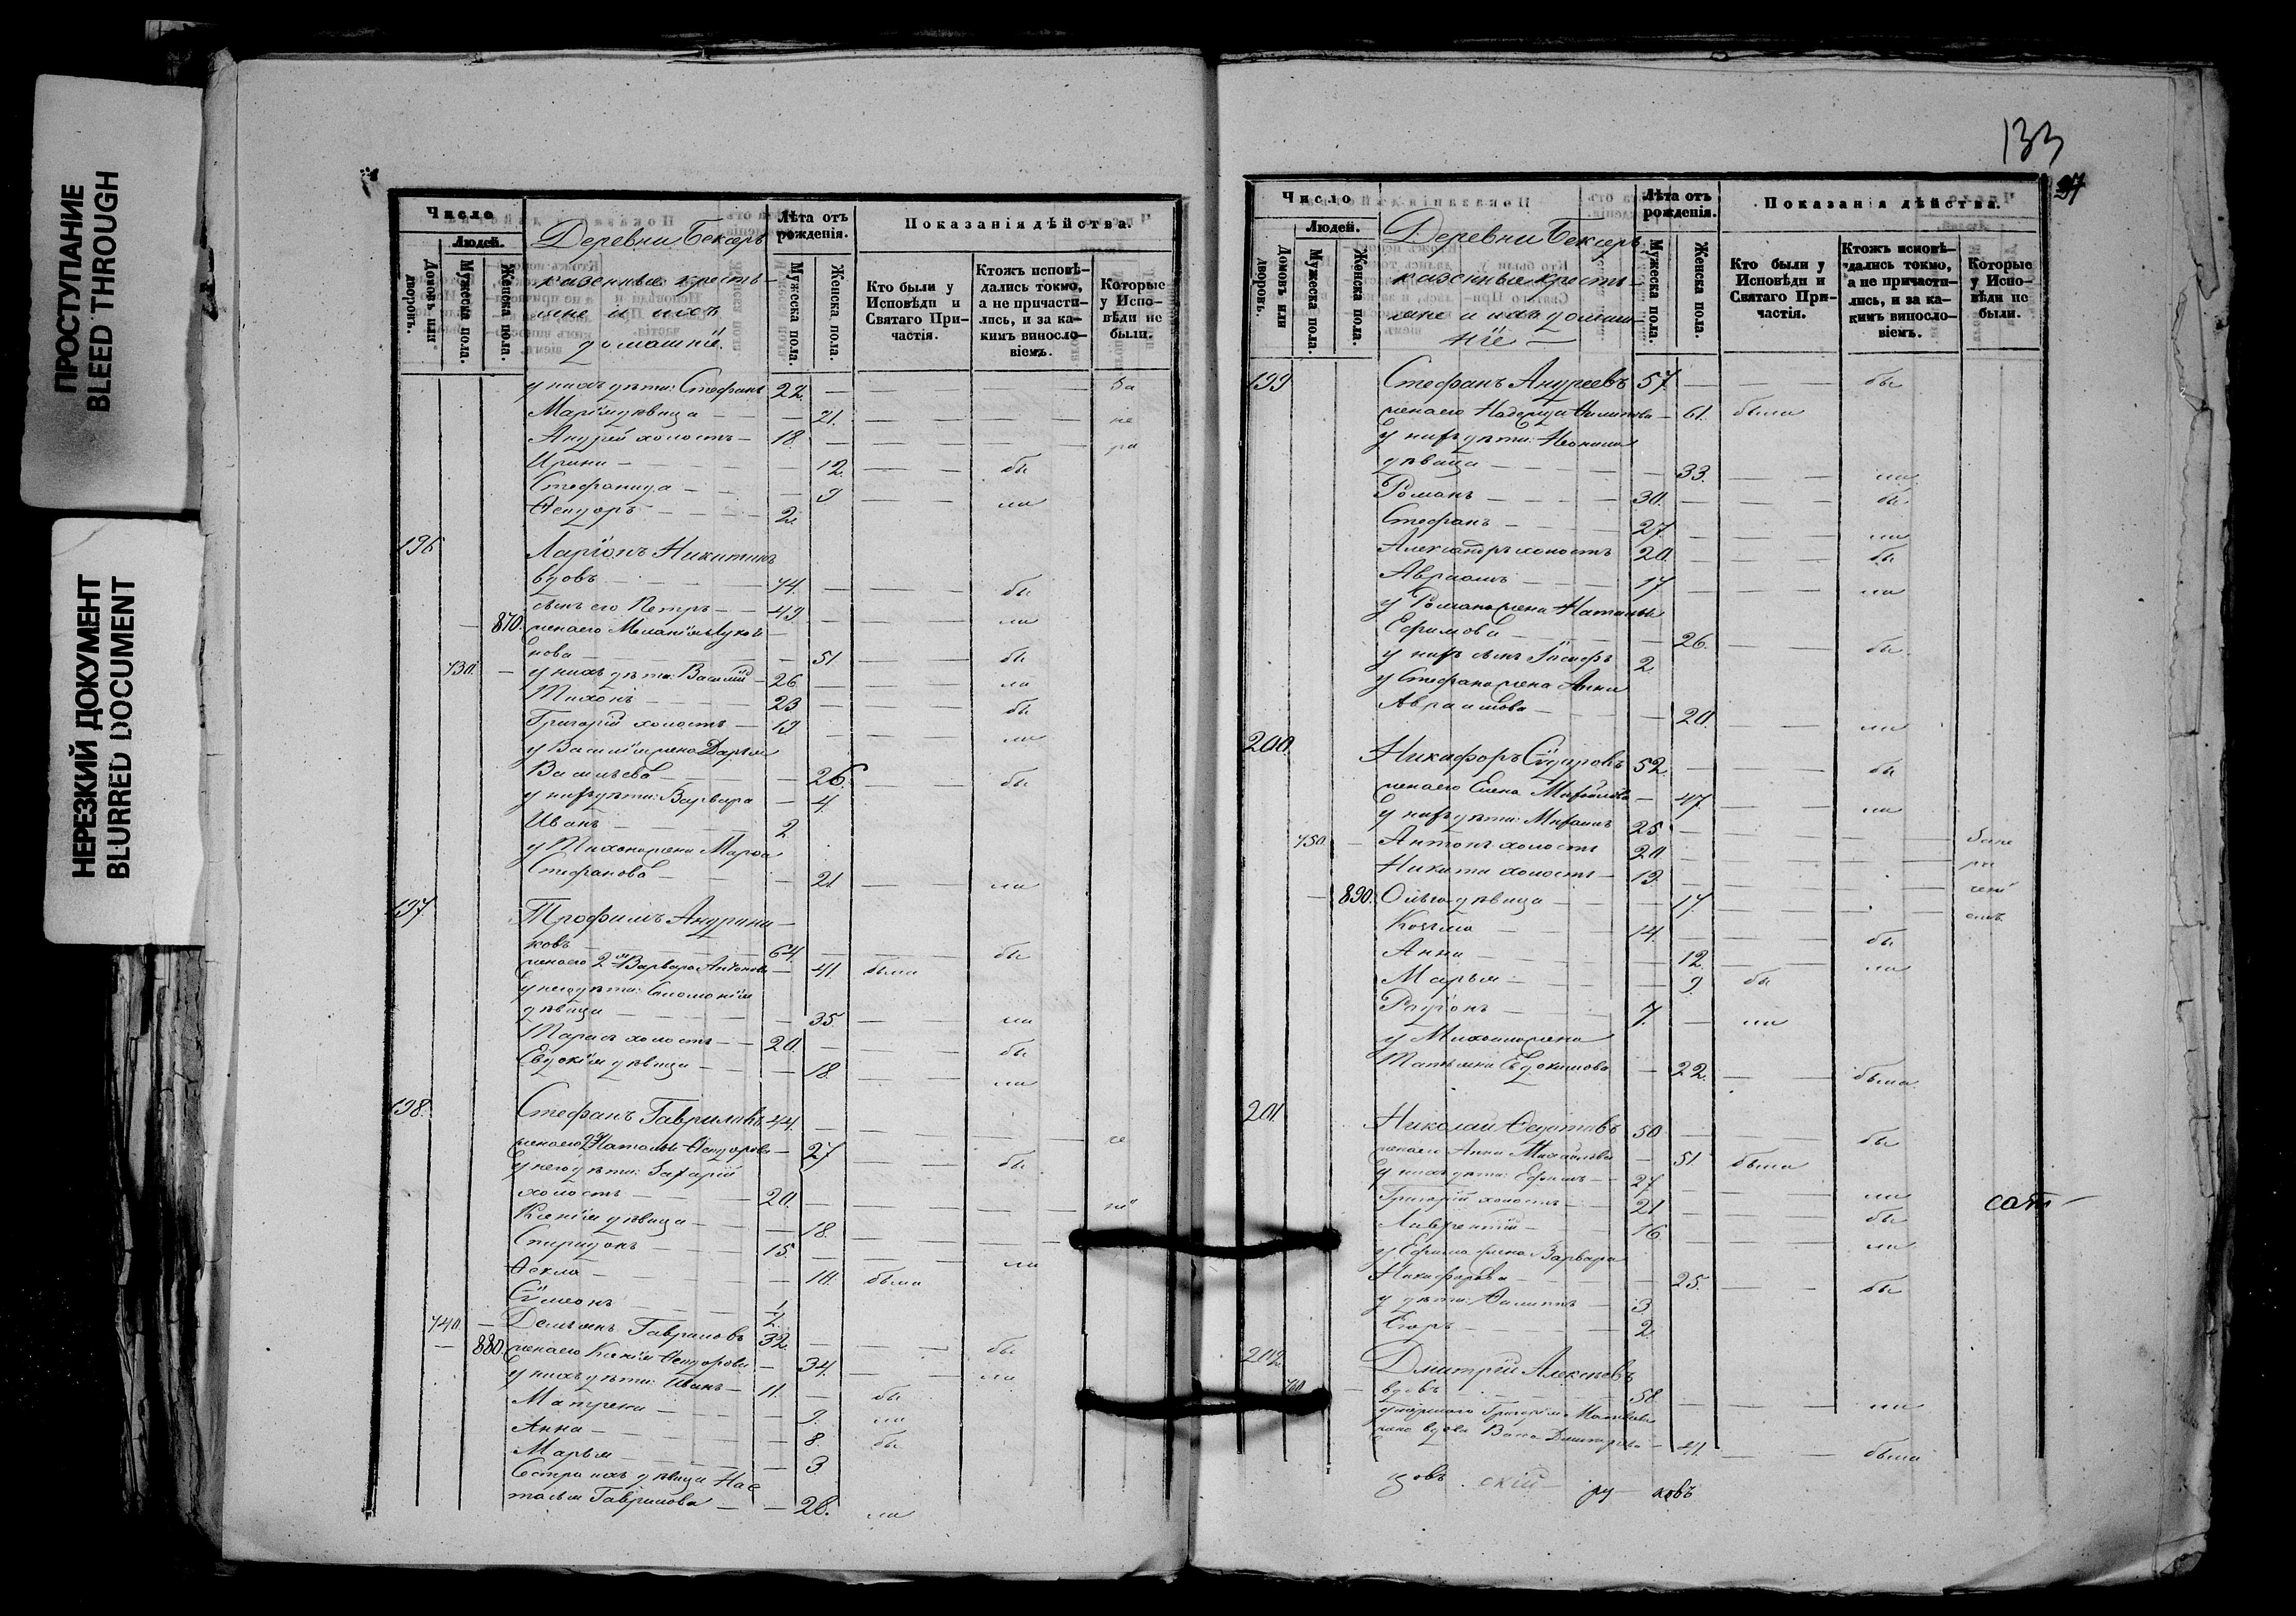 ПРОСТУПАНИЕ
BLEED THROUGH
НЕРЕЗКИЙ ДОКУМЕНТ
BLURRED DOCUMENT
Число
Людей.
Домовъ или дворовъ.
Мужеска пола.
Женска пола.
Деревни Бексеръ
казенные кресть-
яне и ихъ
домашніе.
Лѣта отъ рожденія.
Мужеска пола.
Женска пола.
Показанія дѣйства.
Кто были у Исповѣди и Святаго Причастія.
Ктожъ исповѣдались токмо, а не причастились, и за какимъ винословіемъ.
Которые у Исповѣди не были.
у нихъ дѣти: Стефанъ 22.
Марія дѣвица 21. не
Андрей холостъ 18.
Ирина 12. бы
Стефанида 9 ли
Ѳеодоръ 2.
196 Ларіонъ Никитинъ
вдовъ 74. бы
сынъ его Петръ 49 ли
870. жена его Меланія
нова 51 бы
730. у нихъ дѣти: Василій 26 ли
Тихонъ 23 бы
Григорій холостъ 19 ли
у Василія жена Дарья
Васильева 26. бы
у нихъ дѣти: Варвара 4
Иванъ 2
у Тихона жена Марѳа
Стефанова 21 ли
197. Трофимъ Андрени-
ковъ 64. бы
жена его 2я Варвара Антонова 41. была
у него дѣти: Соломонія
дѣвица 35 ли
Тарасъ холостъ 20. бы
Евдокія дѣвица 18. ли
198. Стефанъ Гавриловъ 44.
жена его 2я Наталья Ѳеодорова 27 бы
у него дѣти: Захарій
холостъ 20.
Ксенія дѣвица 18.
Спиридонъ 15. ли
Ѳекла 10. была
Сѵмеонъ 1/2
740. Демьянъ Гавриловъ 32. бы
880. жена его Ксенія Ѳеодорова 34. ли
у нихъ дѣти: Иванъ 11. бы
Матрена 9. ли
Анна 8. бы
Марья 3
Сестра ихъ дѣвица На
талья Гаврилова 28. ли
133
97
Число
Людей.
Домовъ или дворовъ.
Мужеска пола.
Женска пола.
Деревни Бексеръ
казенные кресть-
яне и ихъ домаш-
ніе
Лѣта отъ рожденія.
Мужеска пола.
Женска пола.
Показанія дѣйства.
Кто были у Исповѣди и Святаго Причастія.
Ктожъ исповѣдались токмо, а не причастились, и за какимъ винословіемъ.
Которые у Исповѣди не были.
199 Стефанъ Андреевъ 57. бы
жена его Надежда Филипова 61. была
у нихъ дѣти: Неонила
дѣвица 33. ли
Романъ 30. бы
Стефанъ 27. ли
Александръ холостъ 20. бы
Авраамъ 17 ли
у Романа жена Наталья
Ефимова 26. бы
у нихъ сынъ Іосифъ 2
у Стефана жена Анна
Авраамова 20. ли
200. Никифоръ Сидоровъ 52. бы
жена его Елена Михайлова 47 ли
у нихъ дѣти: Михаилъ 25
750. Антонъ холостъ 20
Никита холостъ 19
890. Ольга дѣвица 17.
Козьма 14. бы
Анна 12. ли
Марья 9. бы
Родіонъ 7. ли
у Михаила жена
Татьяна Евдокимова 22. была
201. Николай Ѳедотовъ 50 бы
жена его Анна Михайлова 51 была
у нихъ дѣти: Ефимъ 27 ли
Григорій холостъ 21 бы
Лаврентій 16 ли
у Ефима жена Варвара
Никифорова 25. бы
у дѣти: Филиппъ 3.
Егоръ 2.
202. Дмитрій Алексѣевъ
760. вдовъ 58 ли
у умершаго Григорія Матвѣева
жена вдова Васса Дмитрева 41. была